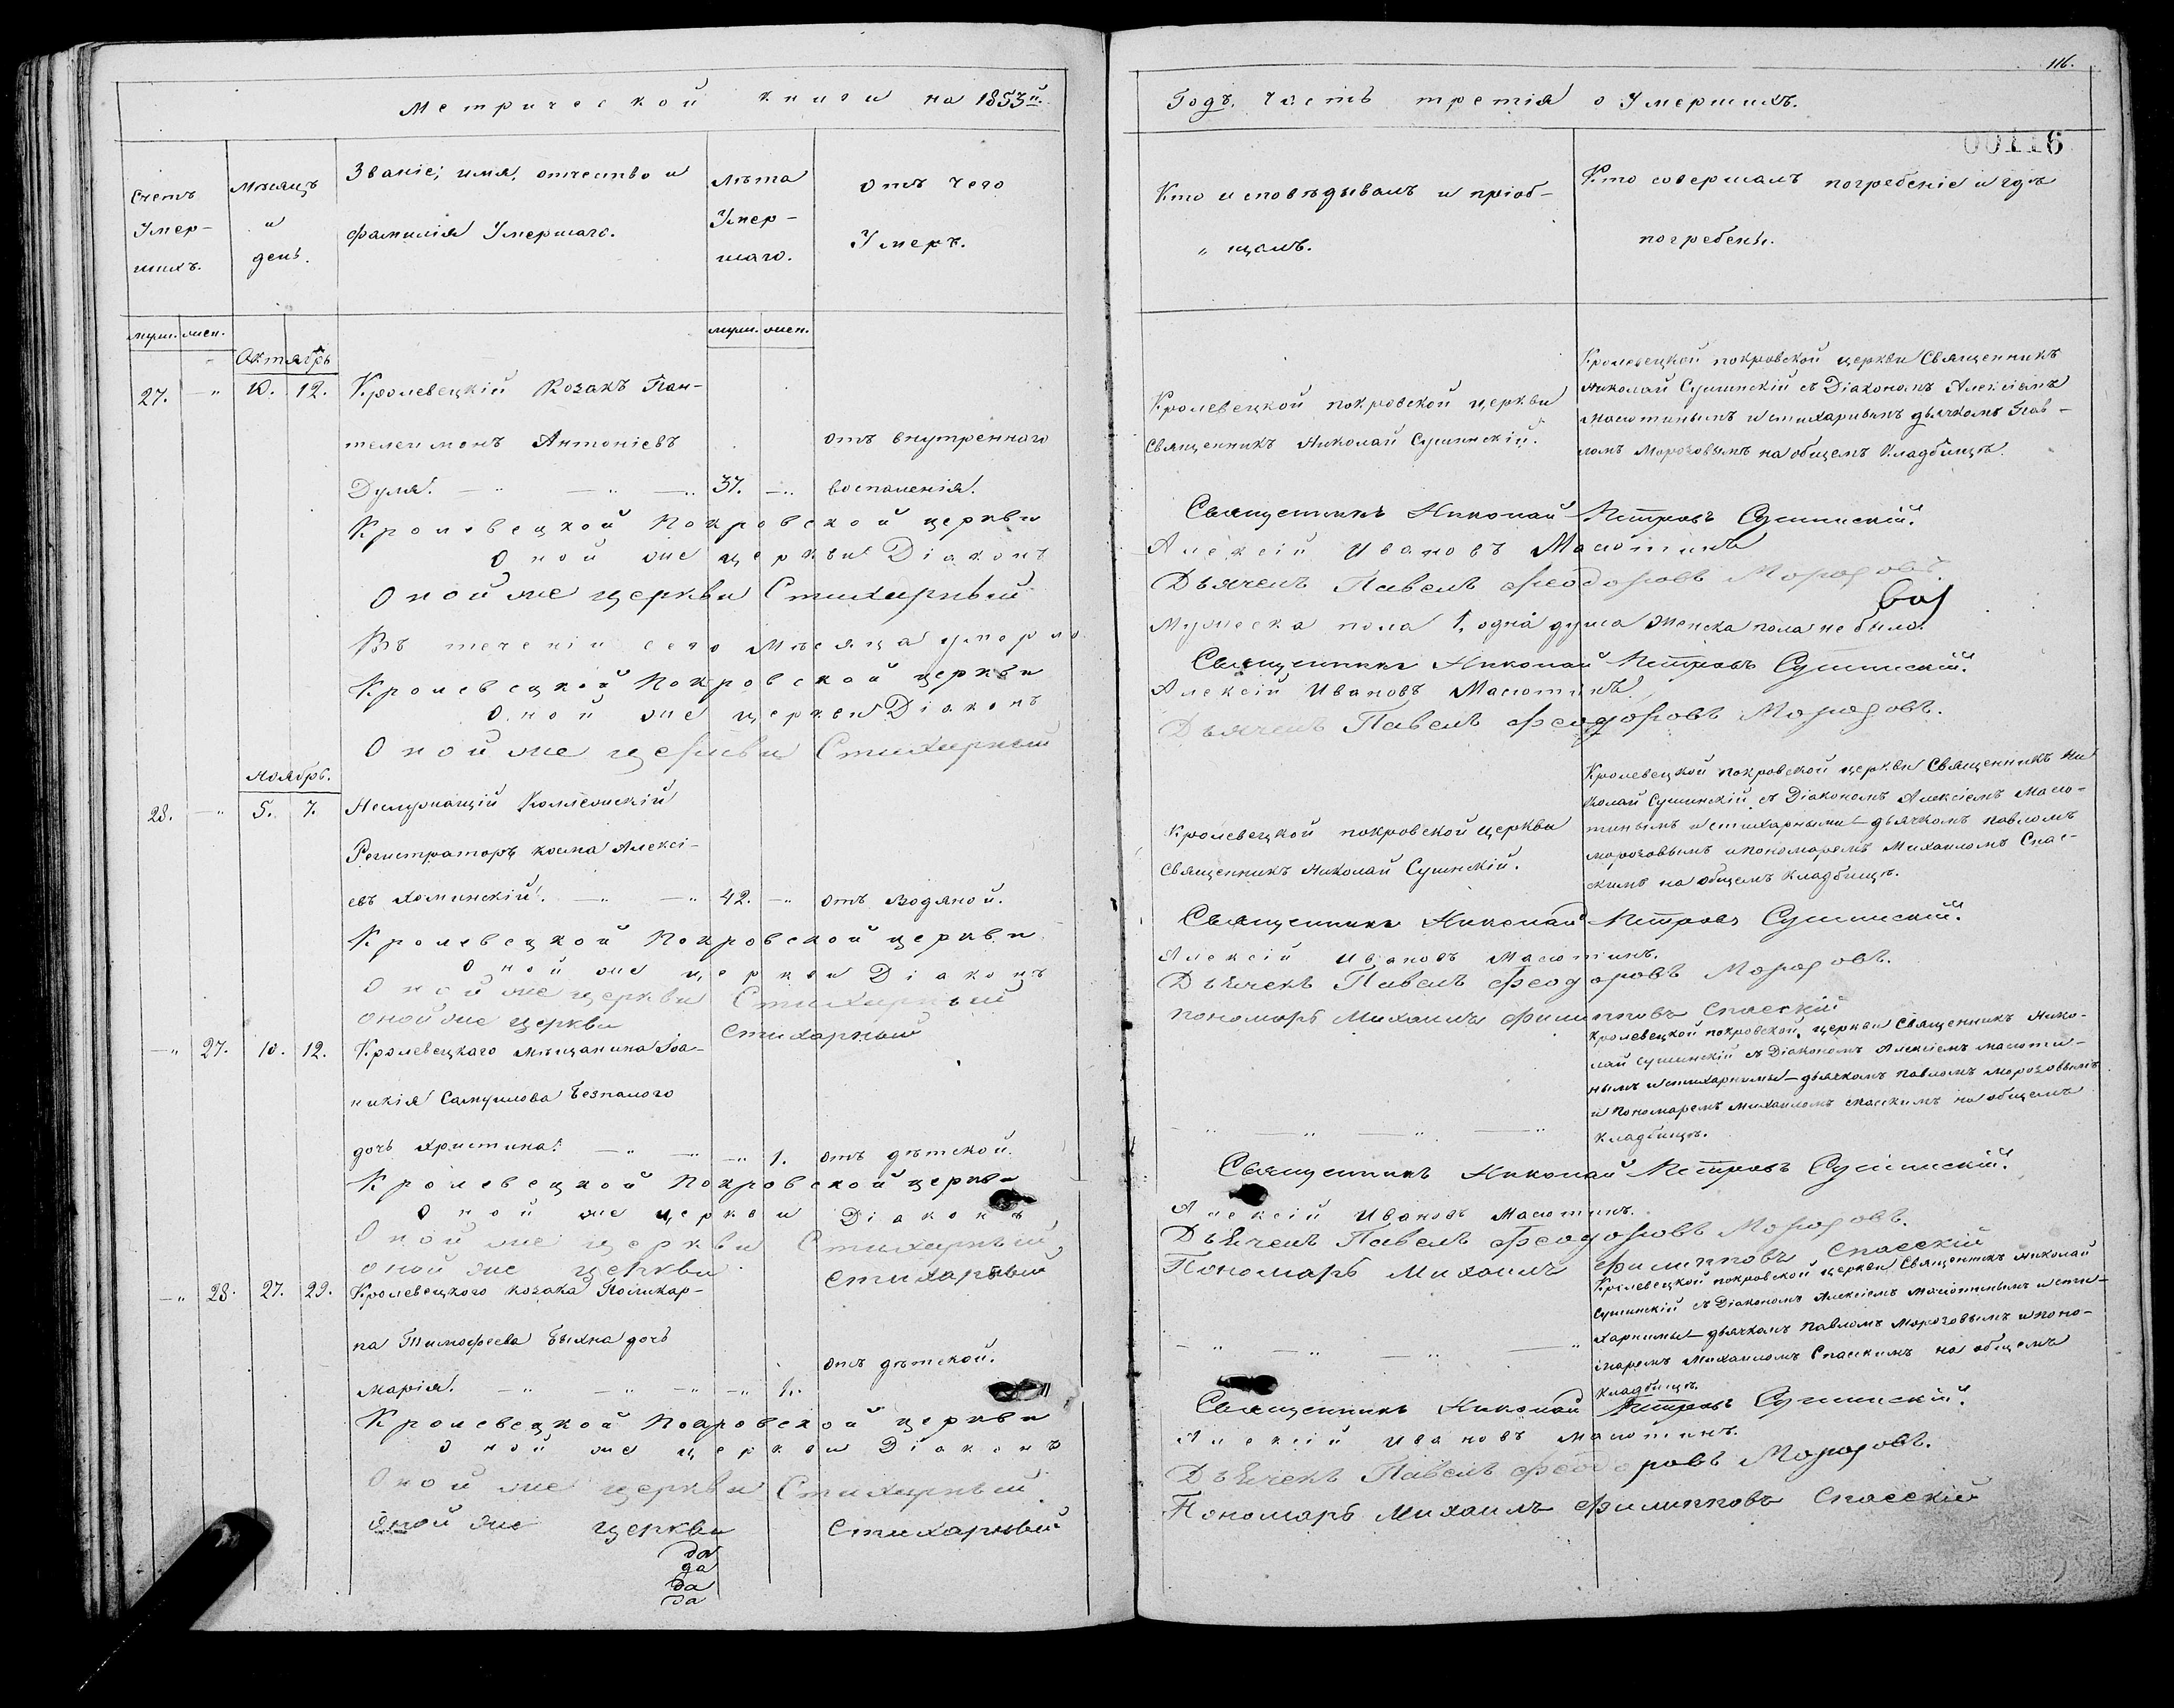 116.
Метрической книги на 1853й.
Годъ. Часть третія о Умершихъ.
00116
Счетъ Умер-шихъ.
Мѣсяцъ и день.
Званіе, имя, отчество и
фамилія Умершаго.
Лѣта Умер-шаго.
Отъ чего
Умеръ.
Кто исповѣдывалъ и пріоб-
„ щалъ.
Кто совершалъ погребеніе и гдѣ
погребены.
муж. жен.
муж. жен.
Октябрь
27. — „ 10. 12. Кролевецкій Козакъ Пан-
телеимонъ Антоніевъ
отъ внутренного
Дуля. — „ — „ — „ 37. — „ воспаленія.
Кролевецкой покровской церкви
Священникъ Николай Сушинскій.
Кролевецкой покровской церкви Священникъ
Николай Сушинскій съ Діакономъ Алексіемъ
Масютинымъ и стихарнымъ дьячкомъ Пав-
ломъ Морозовымъ на общемъ Кладбищѣ.
Кролевецкой Покровской церкви Священникъ Николай Петровъ Сушинскій.
Оной же церкви Діаконъ Алексій Ивановъ Масютинъ
Оной же церкви Стихарный Дьячекъ Павелъ Феодоровъ Морозовъ.
Въ теченіи сего Мѣсяца умерло Мужеска пола 1, одна душа Женска пола не было.
Кролевецкой Покровской церкви Священникъ Николай Петровъ Сушинскій.
Оной же церкви Діаконъ Алексій Ивановъ Масютинъ.
Оной же церкви Стихарный Дьячекъ Павелъ Феодоровъ Морозовъ.
Ноябрь.
28. — „ 5. 7. Неслужащій Коллежскій
Регистраторъ Косма Алексі-
евъ Хоминскій. — „ — „ 42. — „ отъ Водяной.
Кролевецкой покровской церкви
Священникъ Николай Сушинскій.
Кролевецкой покровской церкви Священникъ Ни
колай Сушинскій съ Діакономъ Алексіемъ Масю-
тинымъ и стихарными — дьячкомъ павломъ
морозовымъ и пономаремъ Михаиломъ Спас-
скимъ на общемъ Кладбищѣ.
Кролевецкой Покровской церкви Священникъ Николай Петровъ Сушинскій.
Оной же церкви Діаконъ Алексій Ивановъ Масютинъ.
Оной же церкви Стихарный Дьячекъ Павелъ Феодоровъ Морозовъ.
оной же церкви стихарный пономарь Михаилъ Филипповъ Спасскій
— „ 27. 10. 12. Кролевецкаго мѣщанина Іоа-
никія Самуилова Безпалого
дочь Христина. — „ — „ — „ 1. отъ дѣтской.
— „ — „ — „ — „
Кролевецкой покровской церкви Священникъ Нико-
лай Сушинскій съ Діакономъ Алексіемъ масюти-
нымъ и стихарными — дьячкомъ павломъ морозовымъ
и пономаремъ михаиломъ спасскимъ на общемъ
кладбищѣ.
Кролевецкой Покровской церкви Священникъ Николай Петровъ Сушинскій.
Оной же церкви Діаконъ Алексій Ивановъ Масютинъ.
Оной же церкви Стихарный Дьячекъ Павелъ Феодоровъ Морозовъ.
оной же церкви стихарный Пономарь Михаилъ Филипповъ Спасскій
— „ 28. 27. 29. Кролевецкого козака Поликар-
па Тимофеева Быхна дочь
отъ дѣтской.
Марія. — „ — „ — „ — „ 1.
— „ — „ — „ — „
Кролевецкой покровской церкви Священникъ Николай
Сушинскій съ Діакономъ Алексіемъ Масютинымъ и сти-
харными — дьячкомъ Павломъ Морозовымъ и поно-
маремъ Михаиломъ Спасскимъ на общемъ
Кладбищѣ.
Кролевецкой Покровской церкви Священникъ Николай Петровъ Сушинскій.
Оной же церкви Діаконъ Алексій Ивановъ Масютинъ.
Оной же церкви Стихарный Дьячекъ Павелъ Феодоровъ Морозовъ.
оной же церкви стихарный Пономарь Михаилъ Филипповъ Спасскій
да
да
да
да